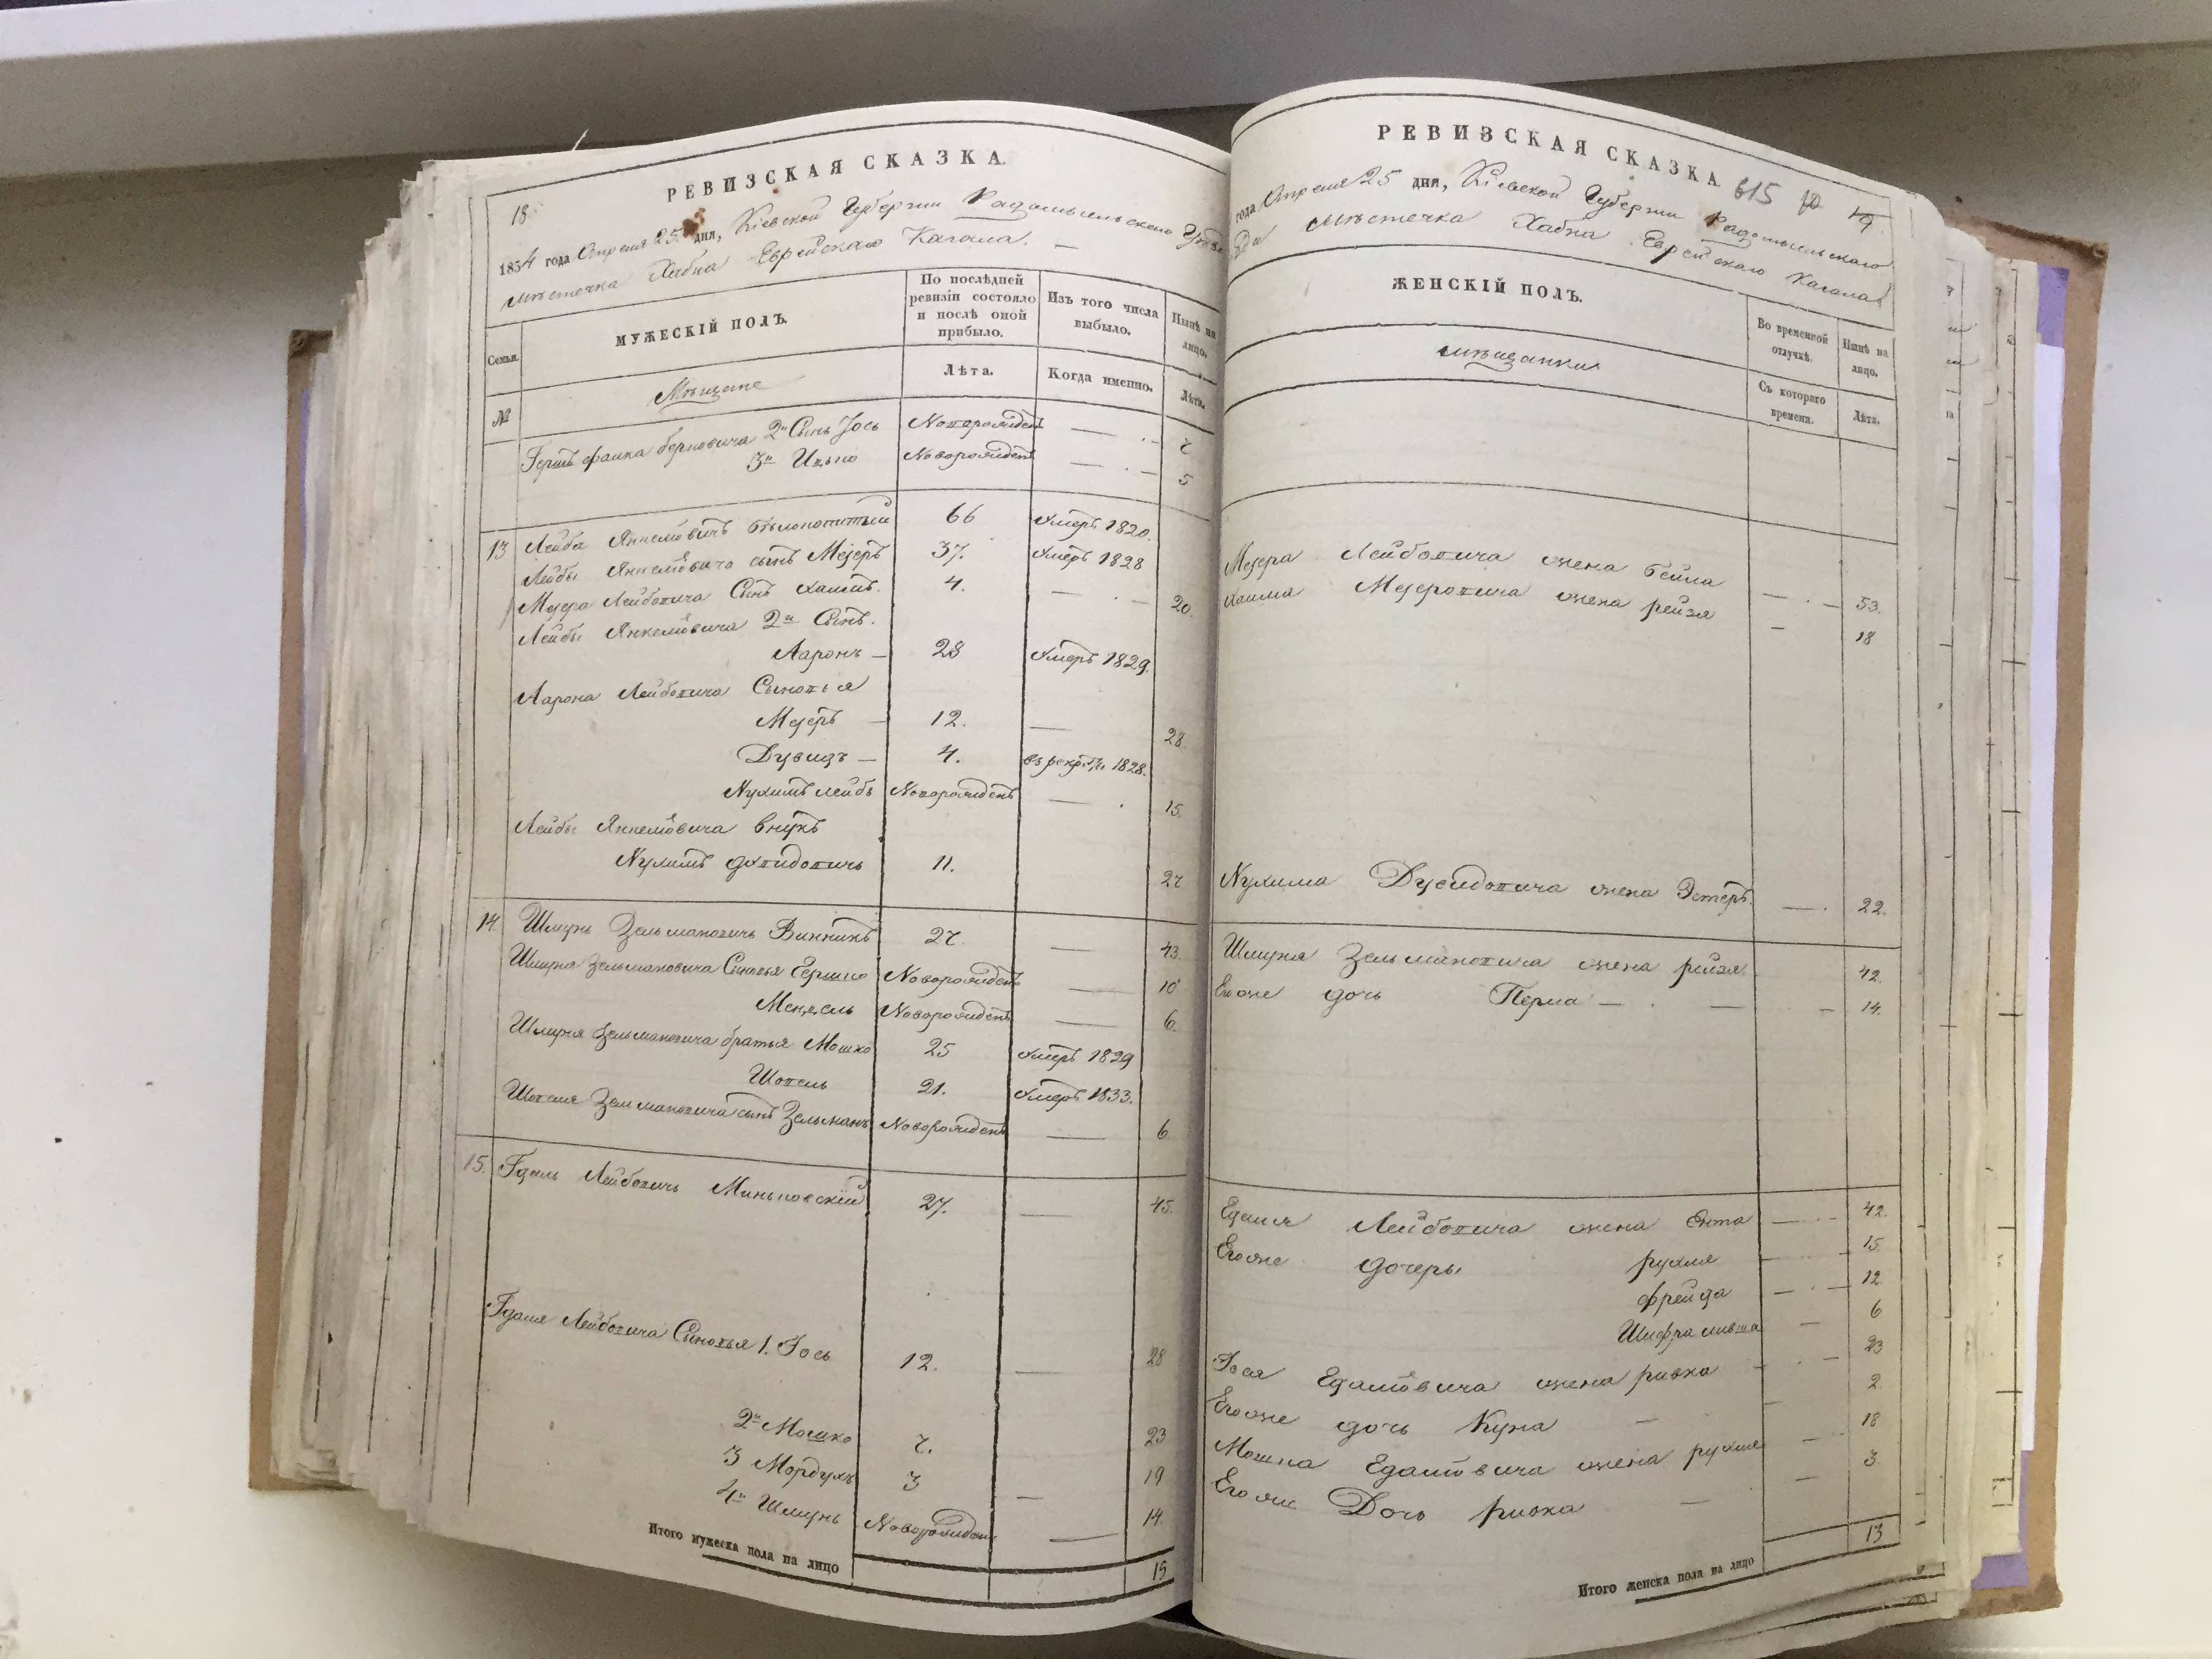 18.
РЕВИЗСКАЯ СКАЗКА.
1834 года Апреля 25 дня, Кіевской Губерніи Радомысльскаго Уѣзда
мѣстечка Хабна Еврейскаго Кагала. —
Семьи.
МУЖЕСКІЙ ПОЛЪ.
По послѣдней ревизіи состояло и послѣ оной прибыло.
Изъ того числа выбыло.
Нынѣ на лицо.
№
Мѣщане
Лѣта.
Когда именно.
Лѣта.
Гершъ фалка берковича 2й Сынъ Іось Новорожденъ — 7
3й Ицько Новорожденъ — 5
13 Лейба Янкелёвичъ Бѣлокопытый 66 умеръ 1820.
Лейбы Янкелёвича сынъ Меэеръ 37. умеръ 1828
Меэера Лейбовича Сынъ Хаимъ. 4. — 20.
Лейбы Янкелёвича 2й Сынъ.
Ааронъ — 28 умеръ 1829.
Аарона Лейбовича Сыновья
Меэеръ — 12. — 28.
Дувидъ — 4. въ рекруты 1828.
Нухимъ лейбъ Новорожденъ — 15.
Лейбы Янкелёвича внукъ
Нухимъ дувидовичъ 11. 27
14 Шмунь Зельмановичъ Винникъ 27. — 43.
Шмуня Зельмановича Сыновья Гершко Новорожденъ — 10
Мендель Новорожденъ — 6.
Шмуня Зельмановича братья Мошко 25 умеръ 1829
Шовель 21. умеръ 1833.
Шовеля Зельмановича сынъ Зельманъ Новорожденъ — 6
15. Гдаль Лейбовичъ Миньковскій 27. — 45.
Гдаля Лейбовича Сыновья 1. Іось 12. — 28
2й Мошко 7. 23
3 Мордухъ 3 — 19
4й Шмунь Новорожденъ — 14.
Итого мужеска пола на лицо 15
РЕВИЗСКАЯ СКАЗКА. 615
года Апреля 25 дня, Кіевской Губерніи Радомысльскаго
мѣстечка Хабна Еврейскаго Кагала
ЖЕНСКІЙ ПОЛЪ.
Во временной отлучкѣ.
Нынѣ на лицо.
мѣщанки
Съ котораго времени.
Лѣта.
Меэера Лейбовича жена Бейла — 53.
Хаима Меэеровича жена рейзя — 18
Нухима Дувидовича жена Эстеръ. — 22.
Шмуня Зельмановича жена рейзя. 42.
Его же дочь Перла — — 14.
Гдаля Лейбовича жена Ента — 42.
Его же дочеры рухля — 15.
фрейда — 12
Шифра — 6
Іося Гдалёвича жена ривка — 23
Его же дочь Куна — 2.
Мошка Гдалёвича жена рухля — 18
Его же Дочь ривка — 3.
Итого женска пола на лицо 13